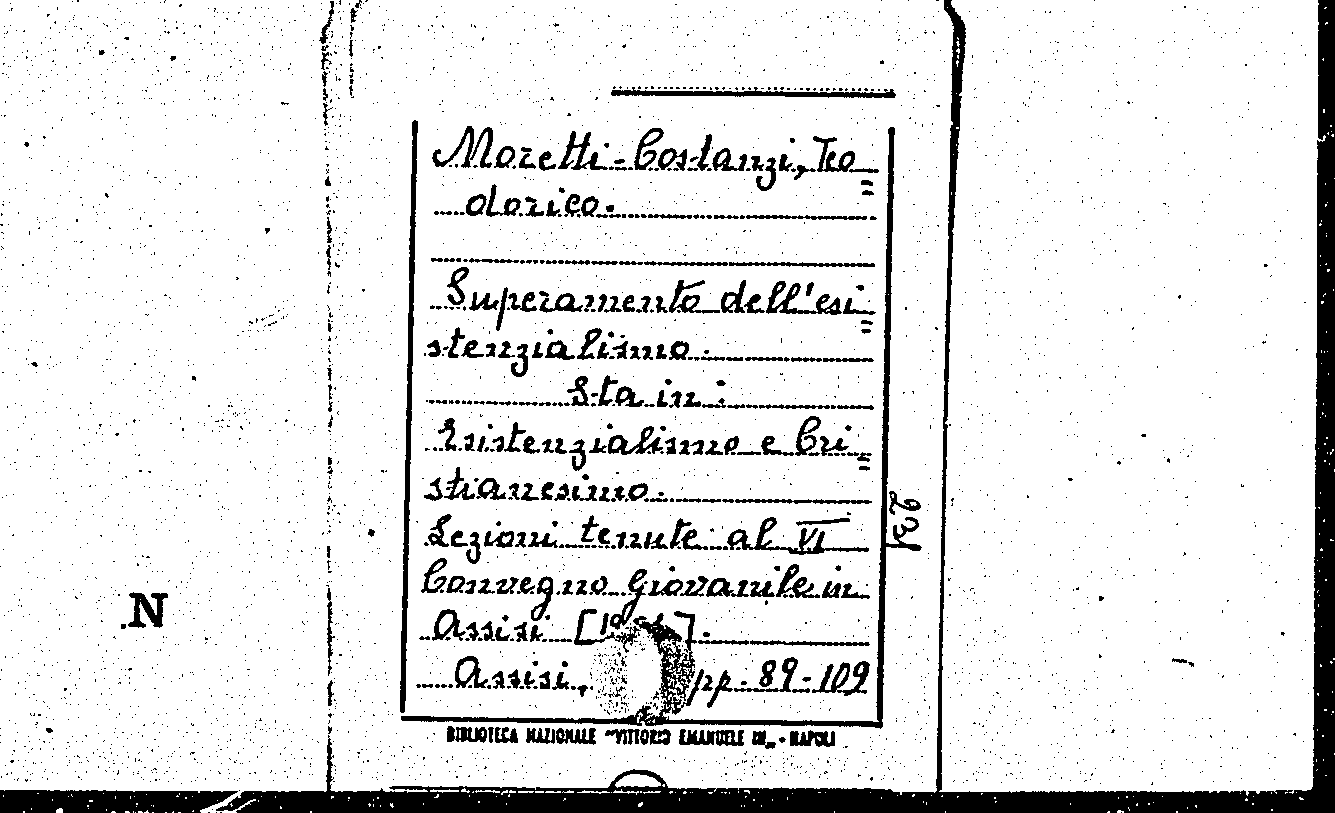 Moretti-Costanzi, Teo=
dorico.
Superamento dell'esi=
stenzialismo.
Sta in:
Esistenzialismo e Cri=
stianesimo.
Lezioni tenute al VI
Convegno Giovanile in
Assisi
Assisi, pp. 89-109
BIBLIOTECA NAZIONALE "VITTORIO EMANUELE III„ - NAPOLI
N